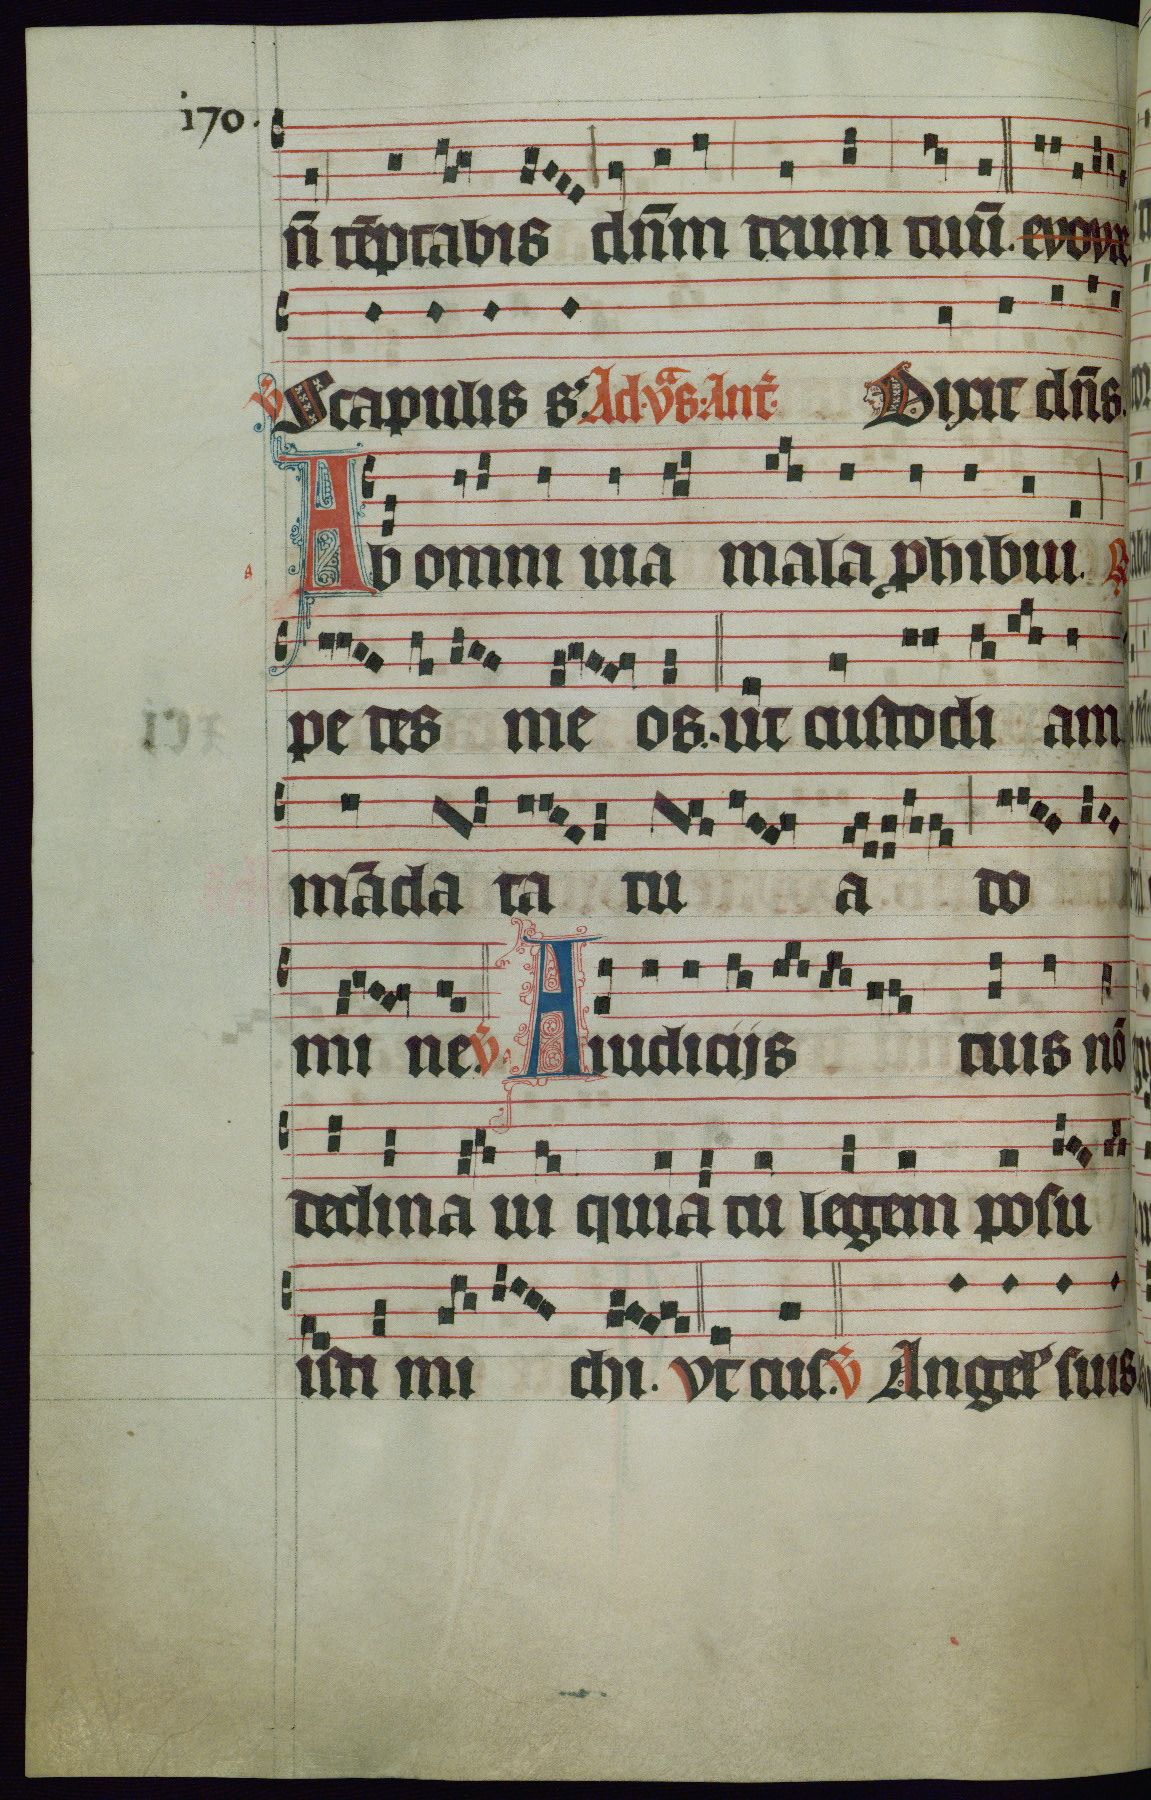 170.
n̄ tēptabis dn̄m deum tuū. evovae
V Scapulis s'. Ad vs̄ᵃ. Ant̄. Dixit dn̄s.
Ab omni uia mala phibui. R
pe des me os. ut custodi am
māda ta tu a do
mi ne V. A iudicijs tuis nō
declina ui quia tu legem posu
isti mi chi. Vt cus. V Angel' suis